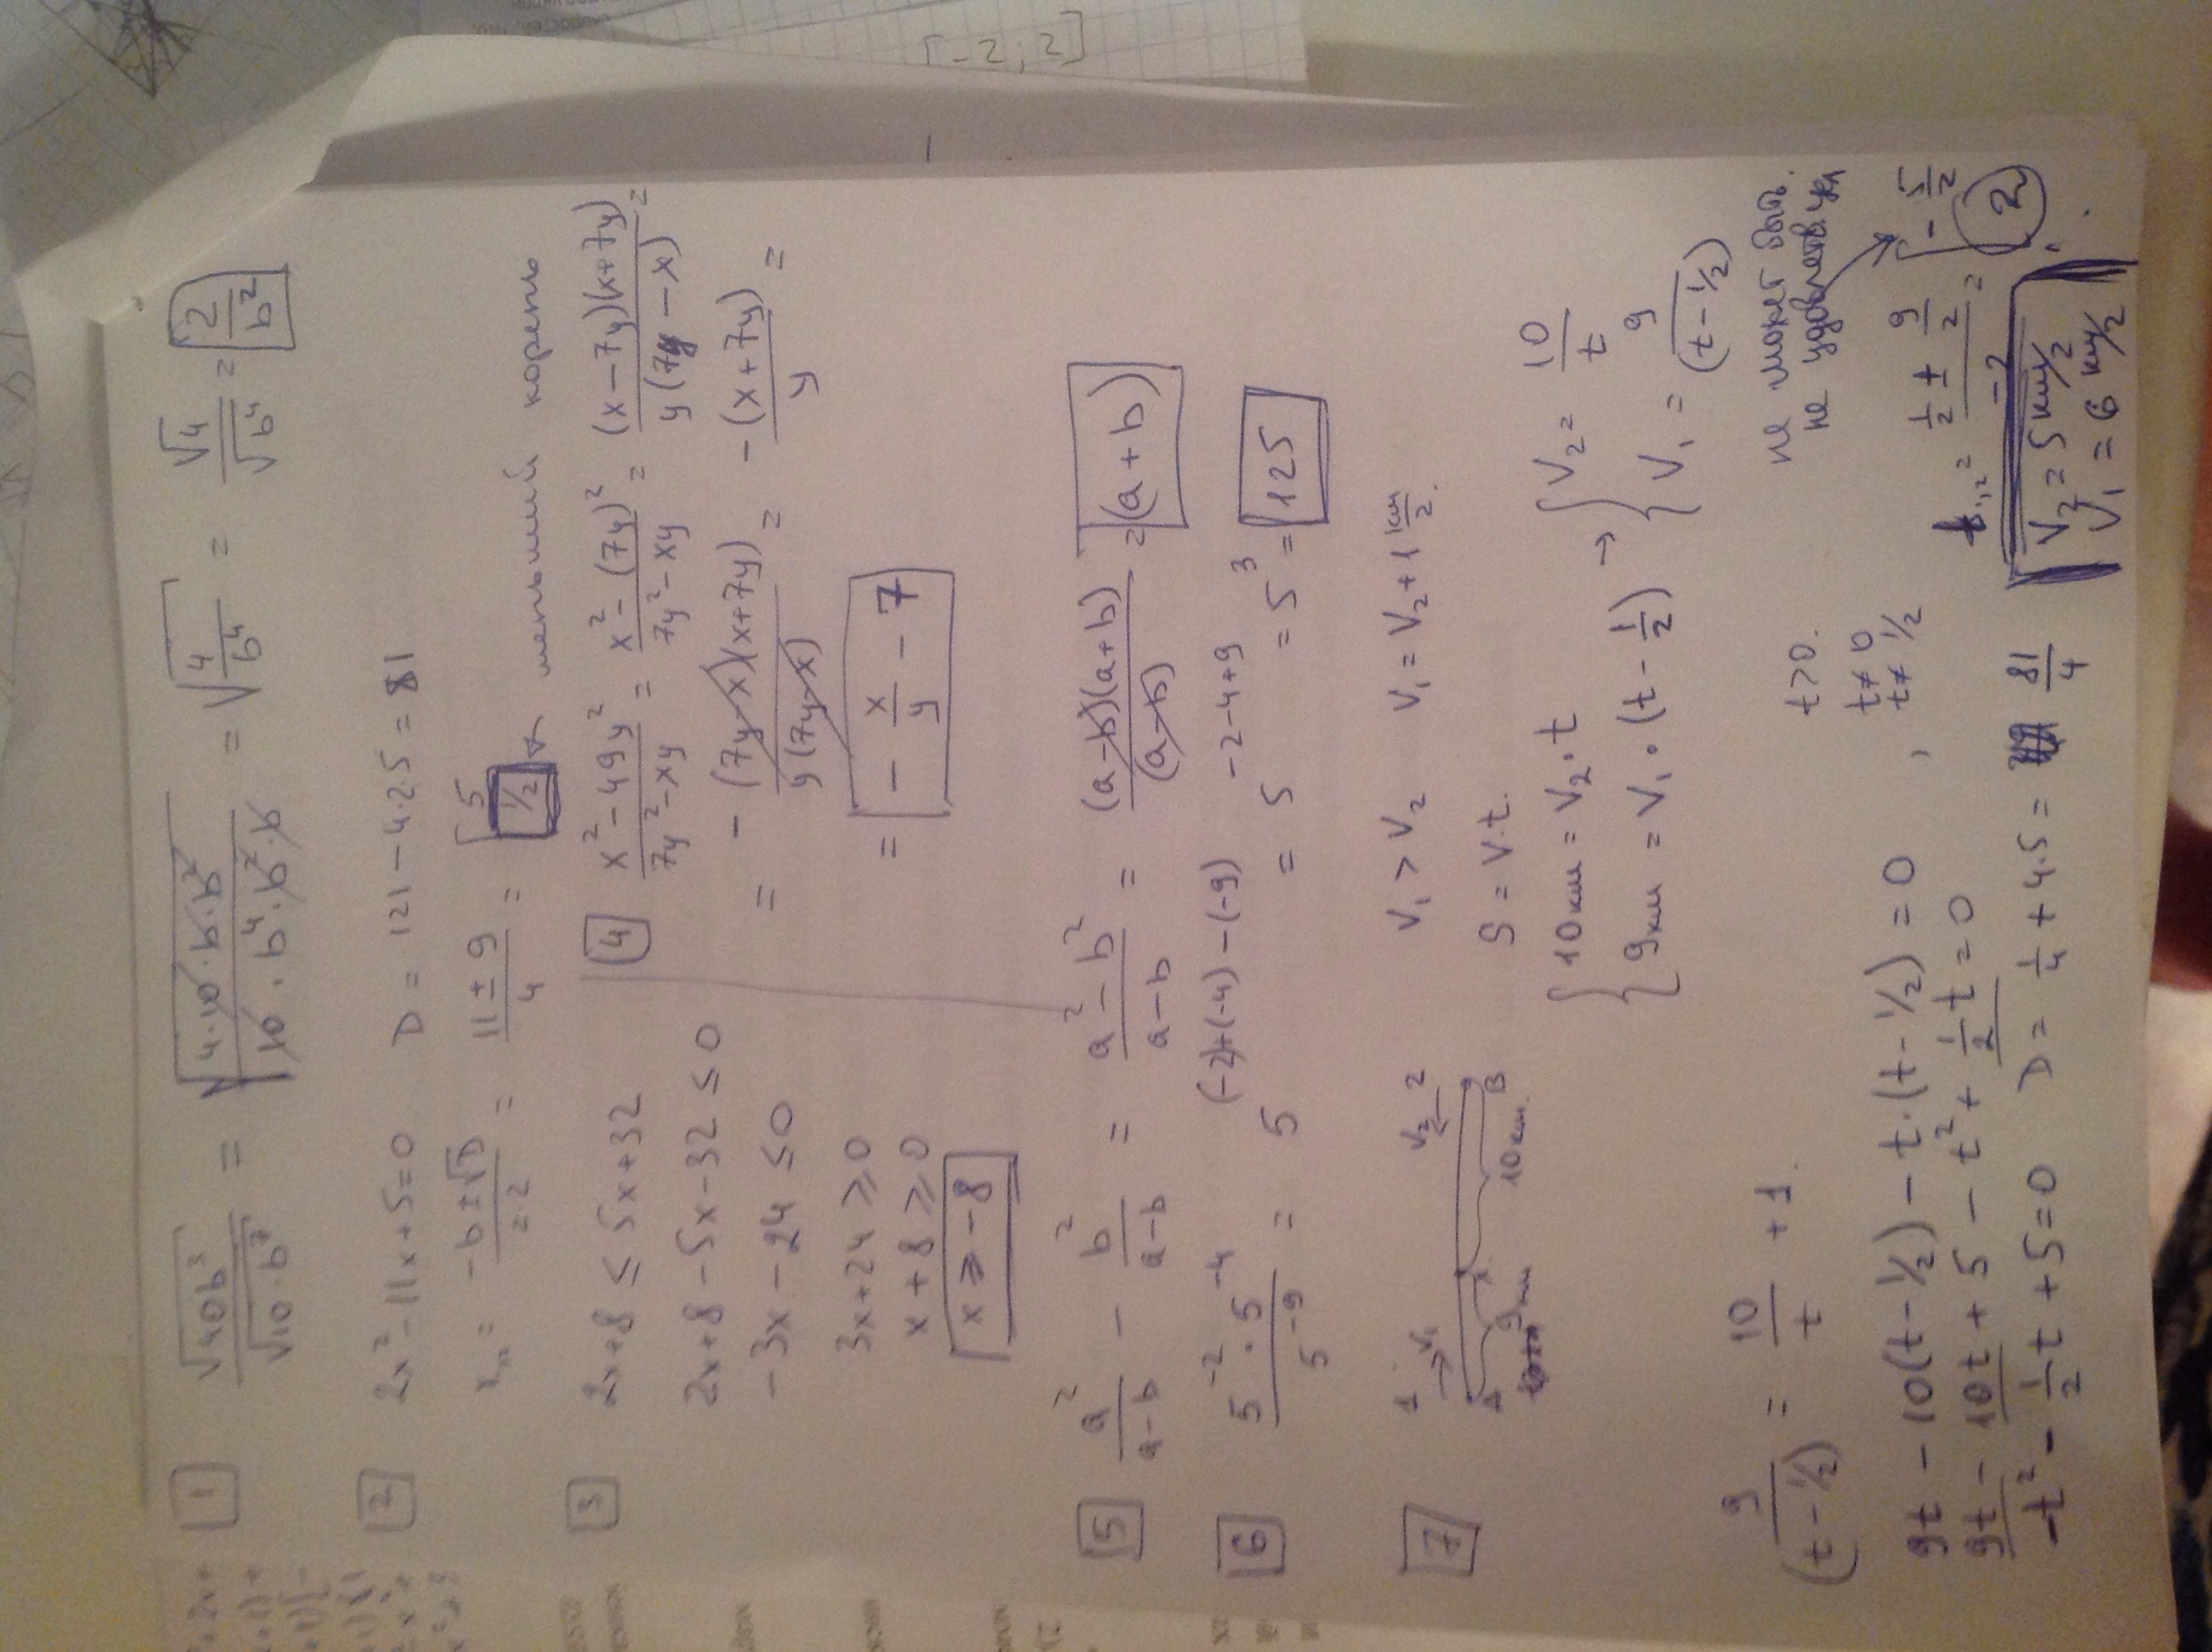 [-2; 2]
1 √40b³/√10·b⁷ = √(4·10·b·b²)/(10·b⁴·b²·b) = √(4/b⁴) = √4/√b⁴ = 2/b²
2 2x²-11x+5=0 D = 121-4·2·5 = 81
= -b±√D/2·2 = 11±9/4 = [5
1/2 ← меньший корень
3 2x+8 ≤ 5x+32
2x+8-5x-32 ≤ 0
-3x-24 ≤ 0
3x+24 ≥ 0
x+8 ≥ 0
x ≥ -8
4 x²-49y²/7y²-xy = x²-(7y)²/7y²-xy = (x-7y)(x+7y)/y(7y-x) =
= -(7y-x)(x+7y)/y(7y-x) = -(x+7y)/y =
= -x/y - 7
5 a²/a-b - b²/a-b = a²-b²/a-b = (a-b)(a+b)/(a-b) = (a+b)
6 5⁻²·5⁻⁴/5⁻⁹ = 5^(-2)+(-4)-(-9) = 5^-2-4+9 = 5³ = 125
7 1 → V₁ V₂ ← 2 V₁ > V₂ V₁ = V₂+1 км/ч.
A 9км 10км B
S = V·t.
{10км = V₂·t
9км = V₁·(t-1/2) → {V₂ = 10/t
V₁ = 9/(t-1/2)
9/(t-1/2) = 10/t +1.
t>0.
t≠0
t≠1/2
не может быть.
9t - 10(t-1/2) - t·(t-1/2) = 0,
9t - 10t + 5 - t² + 1/2t = 0
-t² - 1/2t + 5 = 0 D = 1/4 + 4·5 = 81/4
t₁,₂ = 1/2 ± 9/2/-2 = [-5/2
2ч
V₂ = 5 км/ч
V₁ = 6 км/ч